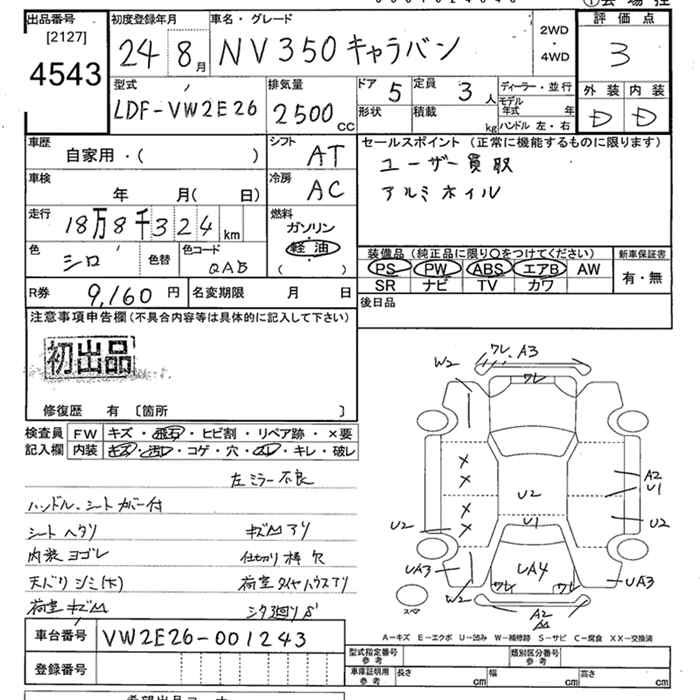 出品番号 初度登録年月 車名・グレード 2WD・4WD 評価点
[2127]
4543 24 8月 NV350キャラバン 3
型式 排気量 ドア 5 定員 3人 ディーラー・並行 外装 内装
LDF-VW2E26 2500cc 形状 積載 kg モデル年式 年 D D
ハンドル 左・右
車歴 シフト セールスポイント (正常に機能するものに限ります)
自家用・( ) AT ユーザー買取
車検 冷房 アルミホイル
年 月( 日) AC
走行 燃料
18万8千324km ガソリン
色 色替 色コード 軽油 装備品 (純正品に限り〇をつけてください) 新車保証書
シロ QAB ( ) PS PW ABS エアB AW 有・無
SR ナビ TV カワ
R券 9,160円 名変期限 月 日 後日品
注意事項申告欄(不具合内容等は具体的に記入して下さい)
初出品
修復歴 有 〔箇所 〕
検査員 FW キズ・飛石・ヒビ割・リペア跡・×要
記入欄 内装 キズ・汚れ・コゲ・穴・凹・キレ・破レ
左ミラー不良
ハンドル、シートカバー付
シートヘタリ キズ凹アリ
内装ヨゴレ 仕切り棒欠
天バリシミ(大) 荷室タイヤハウスアリ
荷室キズ凹
W2 ワレ A3
ワレ
× A2
× U1
U2 × U2 U2
× U1
UA3 UA4 UA3
W2 ワレ ワレ
スペア A2
凹
A-キズ E-エクボ U-凹み W-補修跡 S-サビ C-腐食 XX-交換済
車台番号 VW2E26-001243
登録番号
型式指定番号 参考 類別区分番号 参考
車庫証明用 参考 長さ cm 幅 cm 高さ cm